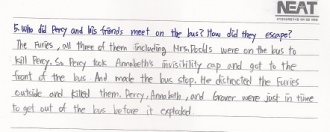 NEAT
5. Who did Percy and his friends meet on the bus? How did they escape?
The Furies, all three of them including Mrs. Dodds were on the bus to
kill Percy. So Percy took Annabeth's invisibility cap and got to the
front of the bus. And made the bus stop. He distracted the Furies
outside and killed them. Percy, Annabeth, and Grover were just in time
to get out of the bus before it exploded